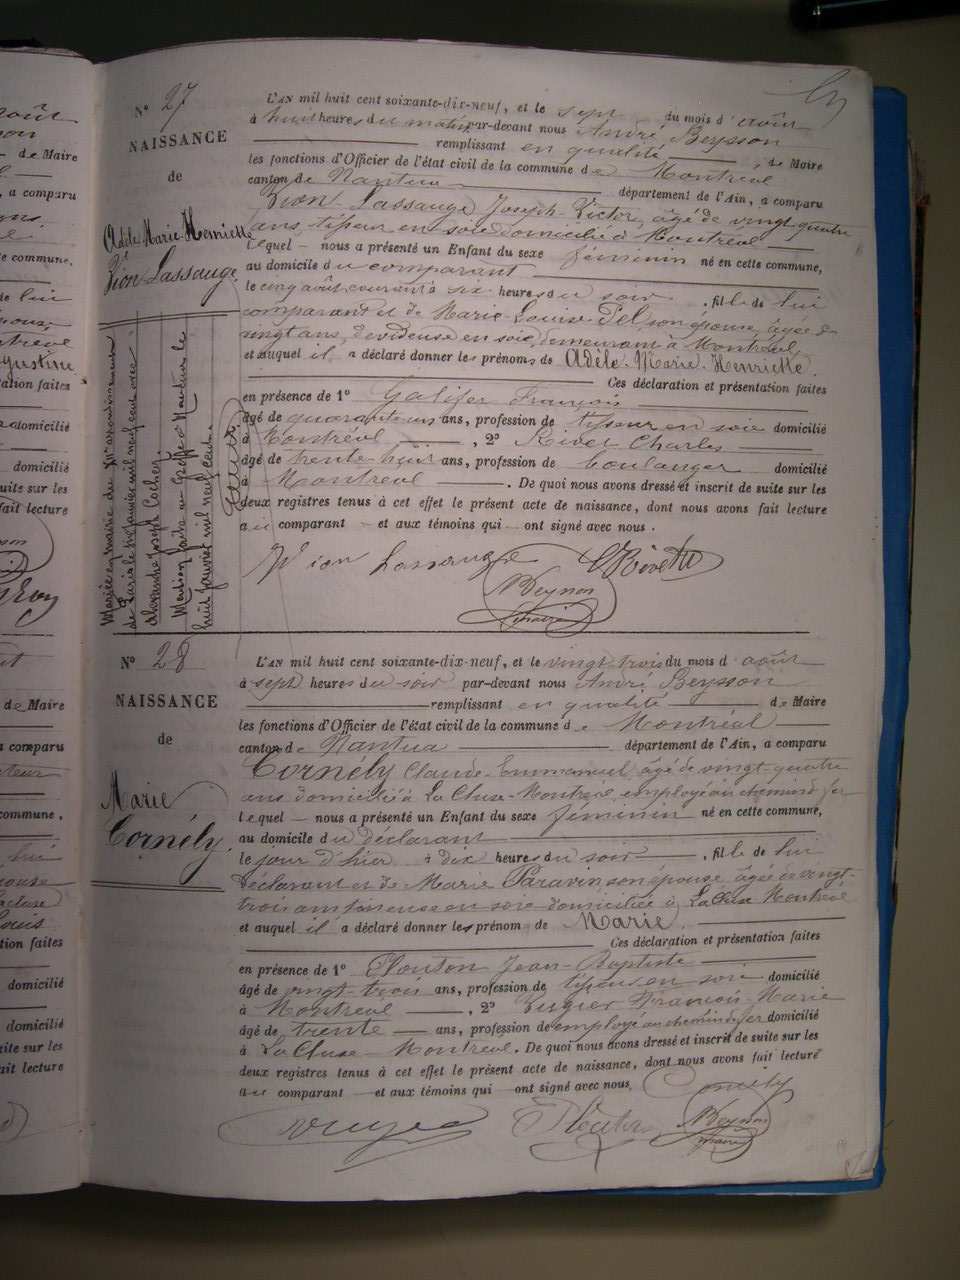 N° 27
NAISSANCE
de
Adèle Marie Henriette
Vion Lassauge
L'AN mil huit cent soixante-dix-neuf, et le sept du mois d'août
à huit heures du matin par-devant nous André Beysson
remplissant en qualité de Maire
les fonctions d'Officier de l'état civil de la commune de Montréal
canton de Nantua département de l'Ain, a comparu
Vion Lassauge Joseph-Victor, âgé de vingt-quatre
ans, tisseur en soie domicilié à Montréal
Lequel nous a présenté un Enfant du sexe féminin né en cette commune,
au domicile du comparant
le cinq août courant à six heures du soir, fille de lui
comparant et de Marie-Louise Pel son épouse, âgée de
vingt ans, dévideuse en soie, demeurant à Montréal,
et auquel il a déclaré donner les prénoms de Adèle. Marie. Henriette.
Ces déclaration et présentation faites
en présence de 1° François
âgé de quarante ans, profession de tisseur en soie domicilié
à Montréal, 2° Rivet Charles
âgé de trente huit ans, profession de boulanger domicilié
à Montréal. De quoi nous avons dressé et inscrit de suite sur les
deux registres tenus à cet effet le présent acte de naissance, dont nous avons fait lecture
au comparant et aux témoins qui ont signé avec nous.
Mariée en mairie du XIe arrondissement
de Paris le janvier mil neuf cent avec
Alexandre Joseph Cochet.
Mention faite au Greffe à Nantua le
huit janvier mil neuf cent
Vion Lassauge
C Rivet
N° 28
NAISSANCE
de
Marie
Cornély.
L'AN mil huit cent soixante-dix-neuf, et le vingt trois du mois d'août
à sept heures du soir par-devant nous André Beysson
remplissant en qualité de Maire
les fonctions d'Officier de l'état civil de la commune de Montréal
canton de Nantua département de l'Ain, a comparu
Cornély Claude-Emmanuel âgé de vingt-quatre
ans domicilié à La Cluse-Montréal, employé au chemin de fer
Lequel nous a présenté un Enfant du sexe féminin né en cette commune,
au domicile du déclarant
le jour d'hier à dix heures du soir, fille de lui
déclarant et de Marie Paravin son épouse âgée de vingt-
trois ans en soie domiciliée à La Cluse Montréal
et auquel il a déclaré donner les prénom de Marie
Ces déclaration et présentation faites
en présence de 1° Jean-Baptiste
âgé de vingt-trois ans, profession de tisseur en soie domicilié
à Montréal, 2° François-Marie
âgé de trente ans, profession de employé au chemin de fer domicilié
à La Cluse-Montréal. De quoi nous avons dressé et inscrit de suite sur les
deux registres tenus à cet effet le présent acte de naissance, dont nous avons fait lecture
au comparant et aux témoins qui ont signé avec nous
Cornély